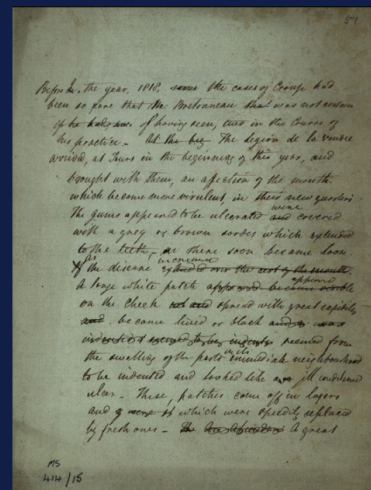 51
Before in the year, 1818, some the cases of Croup had
been so rare that the Bretonneau that was not certain
of having seen, two in the course of
his practice - The legion de la vendee
arrived, at Tours in the beginning of this year, and
brought with them, an affection of the mouth
which became more virulent in their new quarters
The gums appeared to be ulcerated and were covered
with a grey or brown sordes which extended
to the teeth, these soon became loose
As the disease increased
a large white patch appeared
on the cheek spread with great rapidity
and became livid or black
seemed from
the swelling of the parts in its immediate neighbourhood
to be indented and looked like an ill conditioned
ulcer - These, patches come off in layers
and which were speedily replaced
by fresh ones - A great
MS
414/15